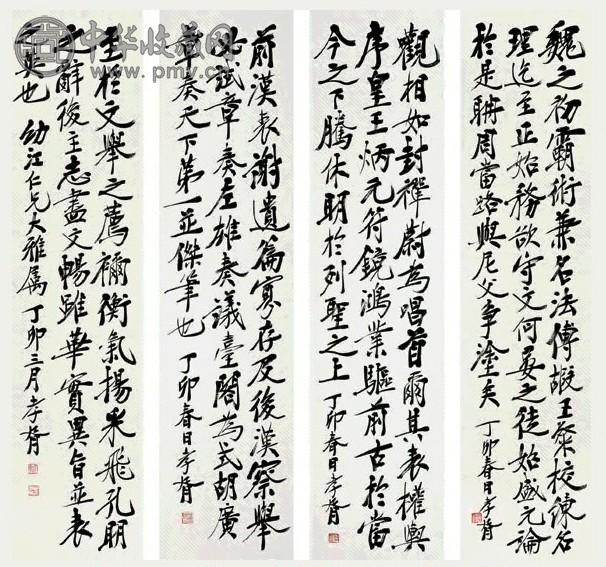 魏之初霸術兼名法傅嘏王粲校練名
理迄至正始務欲守文何晏之徒始盛元論
於是聃周當路與尼父爭塗矣 丁卯春日孝胥
觀相如封禪蔚為唱首爾其表權輿
序皇王炳元符鏡鴻業驅前古於當
今之下騰休明於列聖之上 丁卯春日孝胥
前漢表謝遺篇寡存及後漢察舉
必試章奏左雄奏議臺閣為式胡廣
章奏天下第一並傑筆也 丁卯春日孝胥
至於文舉之薦禰衡氣揚采飛孔明
之辭後主志盡文暢雖華實異旨並表
之英也 幼江仁兄大雅屬 丁卯三月孝胥
中华收藏网
www.pmy.cn